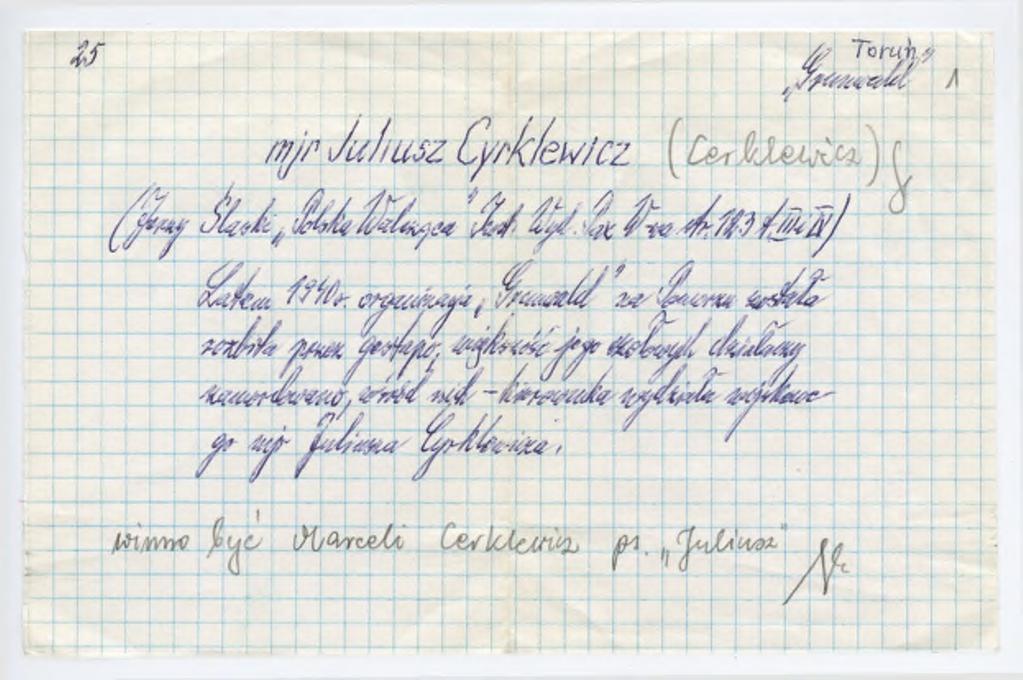 25
Toruń
„Grunwald” 1
mjr Juliusz Cyrklewicz (Cerklewicz)
(Jerzy Ślaski „Polska Walcząca” Inst. Wyd. Pax W-wa str. 123 t. III i IV)
Latem 1940 r. organizacja „Grunwald” na Pomorzu została
rozbita przez gestapo, większość jego czołowych działaczy
zamordowano, wśród nich – kierownika wydziału wojskowe-
go mjr Juliusza Cyrklewicza.
winno być Marceli Cerklewicz ps. „Juliusz”